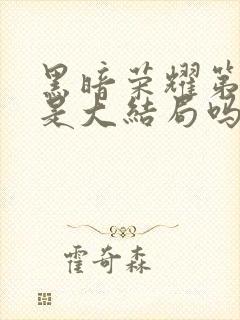 黑暗荣耀第
是大结局吗
霍奇森